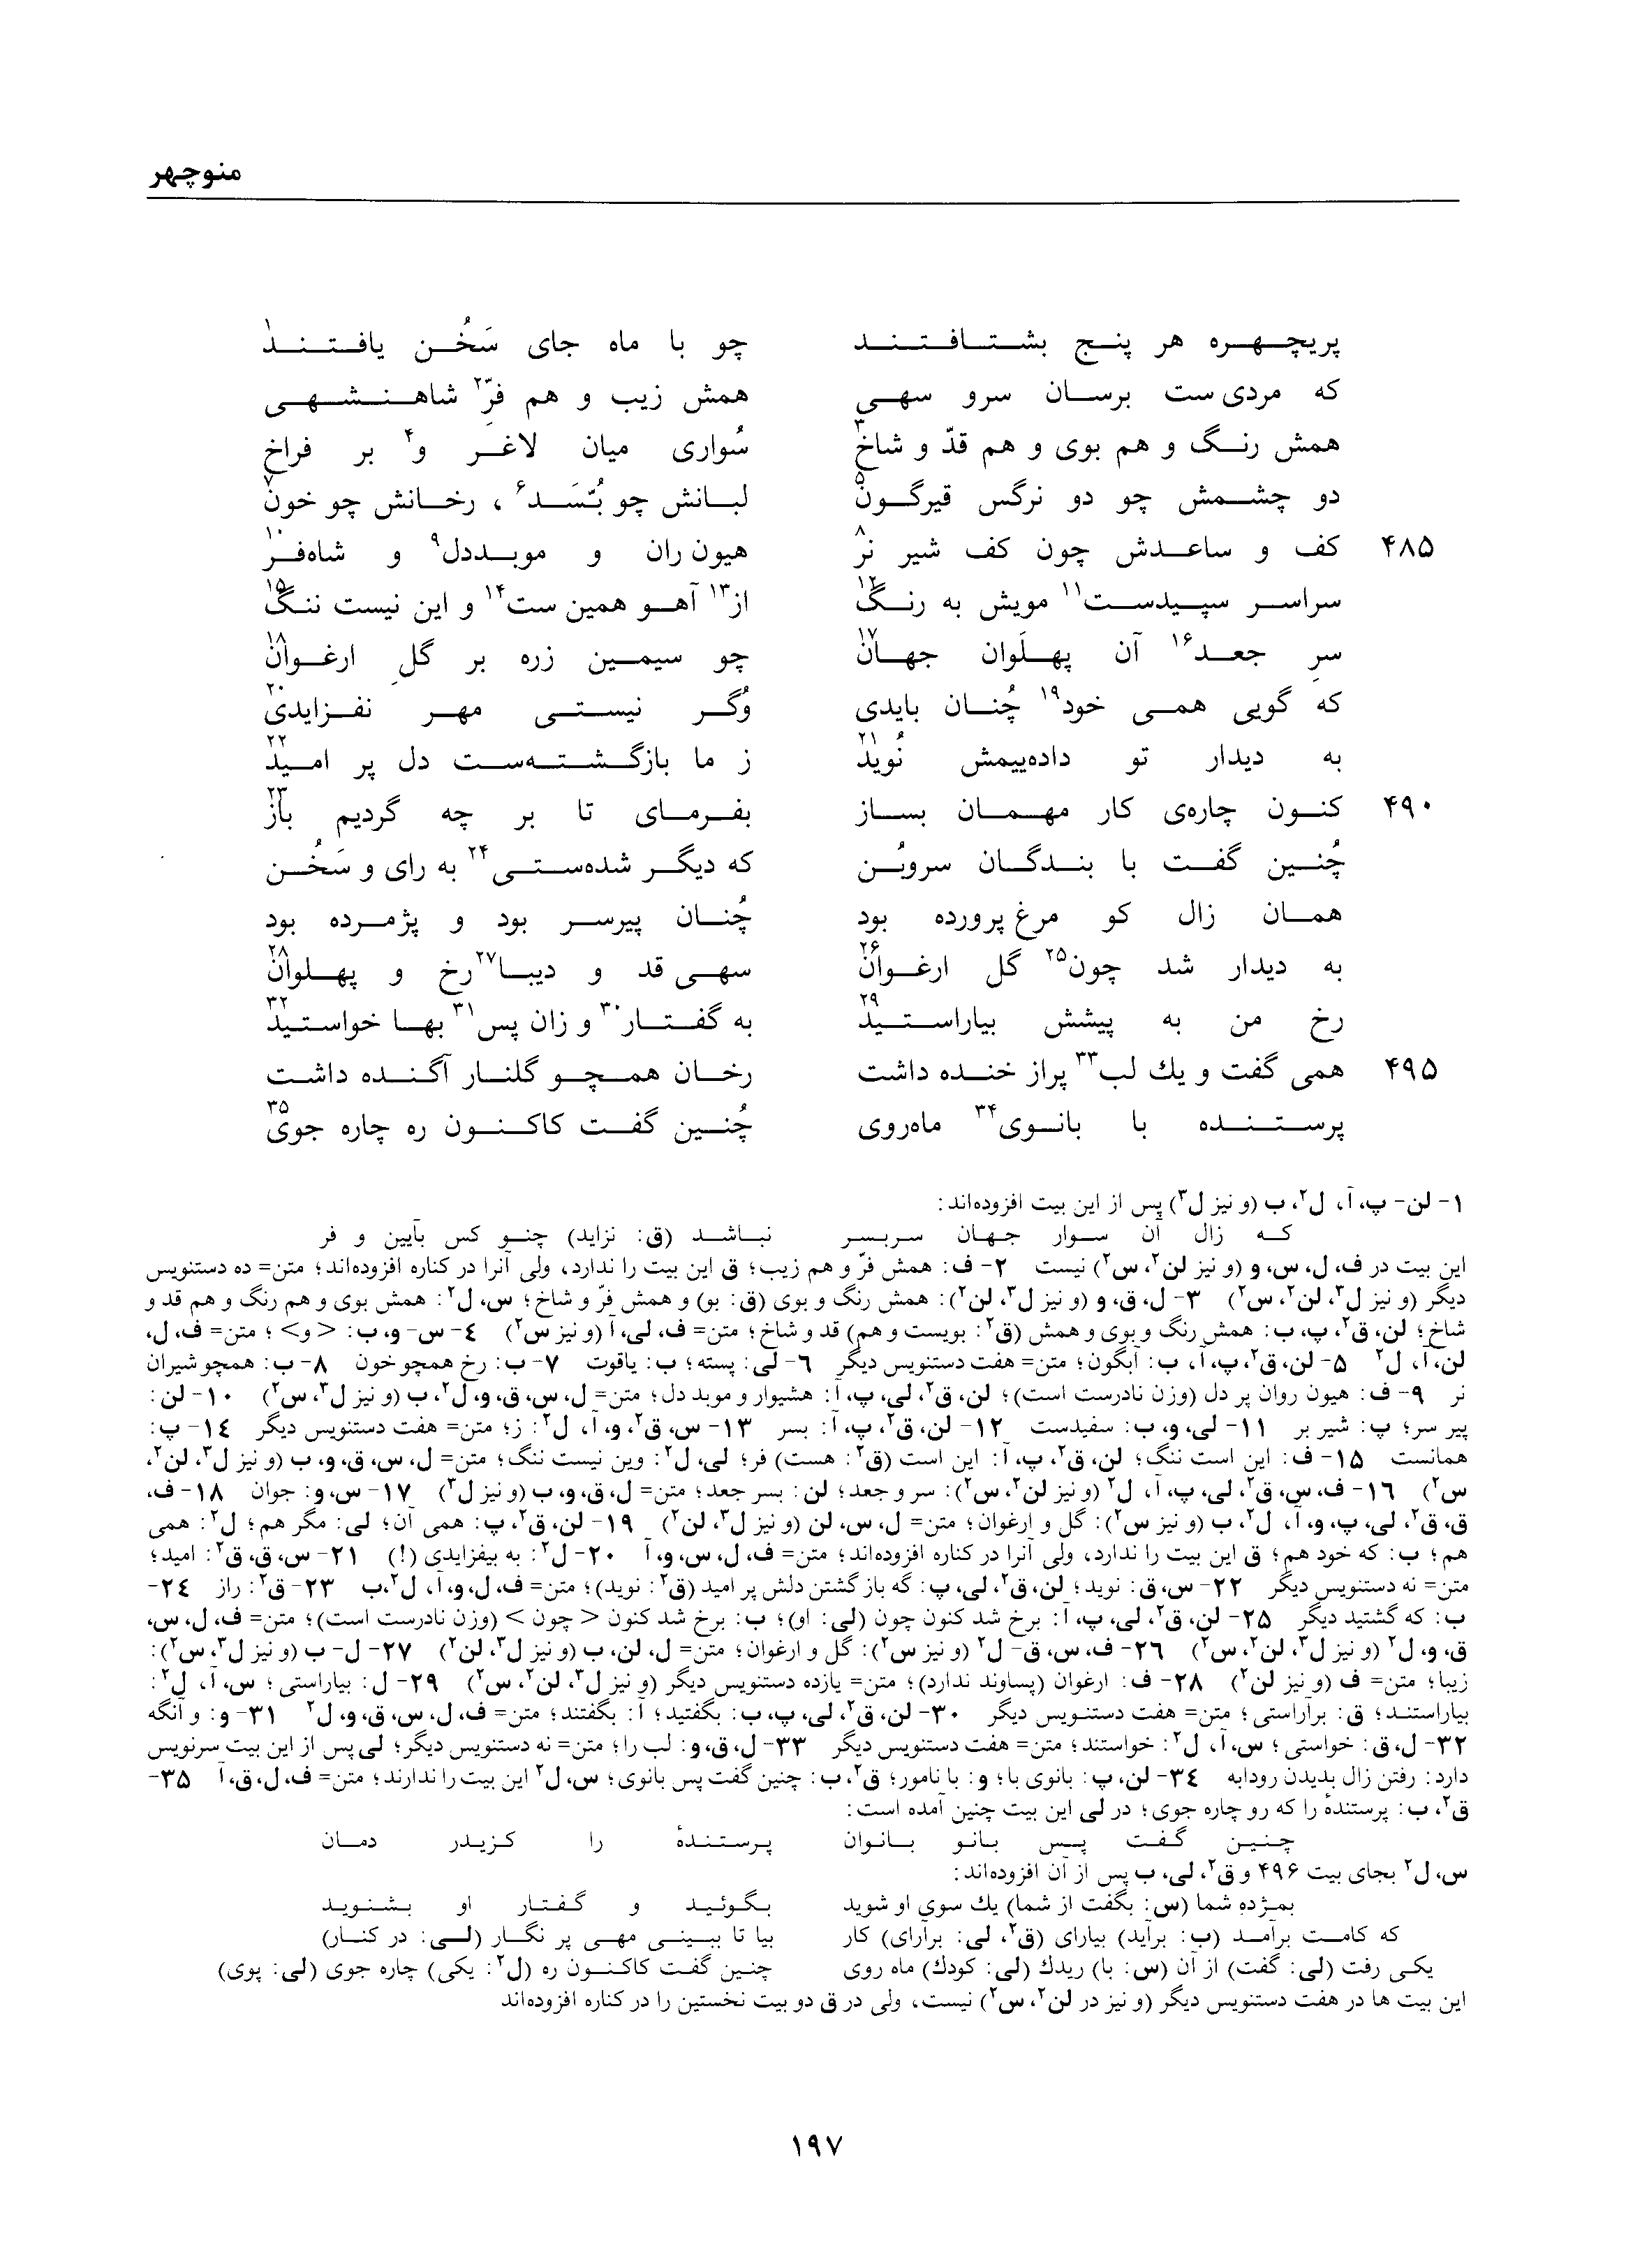 منوچهر
پریچهره هر پنج بشتافتند چو با ماه جای سَخُن یافتند۱
که مردی‌ست برسان سرو سهی همش زیب و هم فرّ۲ شاهنشهی
همش رنگ و هم بوی و هم قدّ و شاخ۳ سُواری میان لاغر و۴ بر فراخ
دو چشمش چو دو نرگس قیرگون۵ لبانش چو بُسّد۶، رخانش چو خون۷
۴۸۵ کف و ساعدش چون کف شیر نر۸ هیون‌ران و موبددل۹ و شاه‌فر۱۰
سراسر سپیدست۱۱ مویش به رنگ۱۲ از۱۳ آهو همین ست۱۴ و این نیست ننگ۱۵
سرِ جعد۱۶ آن پهلَوان جهان۱۷ چو سیمین زره بر گلِ ارغوان۱۸
که گویی همی خود۱۹ چُنان بایدی وُگر نیستی مهر نفزایدی۲۰
به دیدار تو داده‌ییمش نُوید۲۱ ز ما بازگشته‌ست دل پر امید۲۲
۴۹۰ کنون چاره‌ی کار مهمان بساز بفرمای تا بر چه گردیم باز۲۳
چُنین گفت با بندگان سروبُن که دیگر شده‌ستی۲۴ به رای و سَخُن
همان زال کو مرغ پرورده بود چُنان پیرسر بود و پژمرده بود
به دیدار شد چون۲۵ گل ارغوان۲۶ سهی قد و دیبا۲۷ رخ و پهلوان۲۸
رخ من به پیشش بیاراستید۲۹ به گفتار۳۰ و زان پس۳۱ بها خواستید۳۲
۴۹۵ همی گفت و یك لب۳۳ پراز خنده داشت رخان همچو گلنار آگنده داشت
پرستنده با بانوی۳۴ ماه‌روی چُنین گفت کاکنون ره چاره جوی۳۵
۱- لن- پ، آ، ل۲، ب (و نیز ل۳) پس از این بیت افزوده‌اند:
که زال آن سوار جهان سربسر نباشد (ق: نزاید) چنو کس بآیین و فر
این بیت در ف، ل، س، و (و نیز لن۲، س۲) نیست ۲- ف: همش فرّ و هم زیب؛ ق این بیت را ندارد، ولی آنرا در کناره افزوده‌اند؛ متن= ده دستنویس
دیگر (و نیز ل۳، لن۲، س۲) ۳- ل، ق، و (و نیز ل۳، لن۲): همش رنگ و بوی (ق: بو) و همش فرّ و شاخ؛ س، ل۲: همش بوی و هم رنگ و هم قد و
شاخ؛ لن، ق۲، پ، ب: همش رنگ و بوی و همش (ق۲: بویست و هم) قد و شاخ؛ متن= ف، لی، آ (و نیز س۲) ۴- س- و، ب: <و>؛ متن= ف، ل،
لن، آ، ل۲ ۵- لن، ق۲، پ، آ، ب: آبگون؛ متن= هفت دستنویس دیگر ۶- لی: پسته؛ ب: یاقوت ۷- ب: رخ همچو خون ۸- ب: همچو شیران
نر ۹- ف: هیون روان پر دل (وزن نادرست است)؛ لن، ق۲، لی، پ، آ: هشیوار و موبد دل؛ متن= ل، س، ق، و، ل۲، ب (و نیز ل۳، س۲) ۱۰- لن:
پیر سر؛ پ: شیر بر ۱۱- لی، و، ب: سفیدست ۱۲- لن، ق۲، پ، آ: بسر ۱۳- س، ق۲، و، آ، ل۲: ز؛ متن= هفت دستنویس دیگر ۱۴- پ:
همانست ۱۵- ف: این است ننگ؛ لن، ق۲، پ، آ: این است (ق۲: هست) فر؛ لی، ل۲: وین نیست ننگ؛ متن= ل، س، ق، و، ب (و نیز ل۳، لن۲،
س۲) ۱۶- ف، س، ق۲، لی، پ، آ، ل۲ (و نیز لن۲، س۲): سر و جعد؛ لن: بسر جعد؛ متن= ل، ق، و، ب (و نیز ل۳) ۱۷- س، و: جوان ۱۸- ف،
ق، ق۲، لی، پ، و، آ، ل۲، ب (و نیز س۲): گل و ارغوان؛ متن= ل، س، لن (و نیز ل۳، لن۲) ۱۹- لن، ق۲، پ: همی آن؛ لی: مگر هم؛ ل۲: همی
هم؛ ب: که خود هم؛ ق این بیت را ندارد، ولی آنرا در کناره افزوده‌اند؛ متن= ف، ل، س، و، آ ۲۰- ل۲: به بیفزایدی (!) ۲۱- س، ق، ق۲: امید؛
متن= نه دستنویس دیگر ۲۲- س، ق: نوید؛ لن، ق۲، لی، پ: گه باز گشتن دلش پر امید (ق۲: نوید)؛ متن= ف، ل، و، آ، ل۲، ب ۲۳- ق۲: راز ۲۴-
ب: که گشتید دیگر ۲۵- لن، ق۲، لی، پ، آ: برخ شد کنون چون (لی: او)؛ ب: برخ شد کنون <چون> (وزن نادرست است)؛ متن= ف، ل، س،
ق، و، ل۲ (و نیز ل۳، لن۲، س۲) ۲۶- ف، س، ق- ل۲ (و نیز س۲): گل و ارغوان؛ متن= ل، لن، ب (و نیز ل۳، لن۲) ۲۷- ل- ب (و نیز ل۳، س۲):
زیبا؛ متن= ف (و نیز لن۲) ۲۸- ف: ارغوان (پساوند ندارد)؛ متن= یازده دستنویس دیگر (و نیز ل۳، لن۲، س۲) ۲۹- ل: بیاراستی؛ س، آ، ل۲:
بیاراستند؛ ق: برآراستی؛ متن= هفت دستنویس دیگر ۳۰- لن، ق۲، لی، پ، ب: بگفتید؛ آ: بگفتند؛ متن= ف، ل، س، ق، و، ل۲ ۳۱- و: و آنگه
۳۲- ل، ق: خواستی؛ س، آ، ل۲: خواستند؛ متن= هفت دستنویس دیگر ۳۳- ل، ق، و: لب را؛ متن= نه دستنویس دیگر؛ لی پس از این بیت سرنویس
دارد: رفتن زال بدیدن رودابه ۳۴- لن، پ: بانوی با؛ و: با نامور؛ ق۲، ب: چنین گفت پس بانوی؛ س، ل۲ این بیت را ندارند؛ متن= ف، ل، ق، آ ۳۵-
ق۲، ب: پرستندهٔ را که رو چاره جوی؛ در لی این بیت چنین آمده است:
چنین گفت پس بانو بانوان پرستندهٔ را کزیدر دمان
س، ل۲ بجای بیت ۴۹۶ و ق۲، لی، ب پس از آن افزوده‌اند:
بمژده شما (س: بگفت از شما) یك سوی او شوید بگوئید و گفتار او بشنوید
که کامت برآمد (ب: برآید) بیارای (ق۲، لی: برآرای) کار بیا تا ببینی مهی پر نگار (لی: در کنار)
یکی رفت (لی: گفت) از آن (س: با) ریدك (لی: کودك) ماه روی چنین گفت کاکنون ره (ل۲: یکی) چاره جوی (لی: پوی)
این بیت ها در هفت دستنویس دیگر (و نیز در لن۲، س۲) نیست، ولی در ق دو بیت نخستین را در کناره افزوده‌اند
۱۹۷